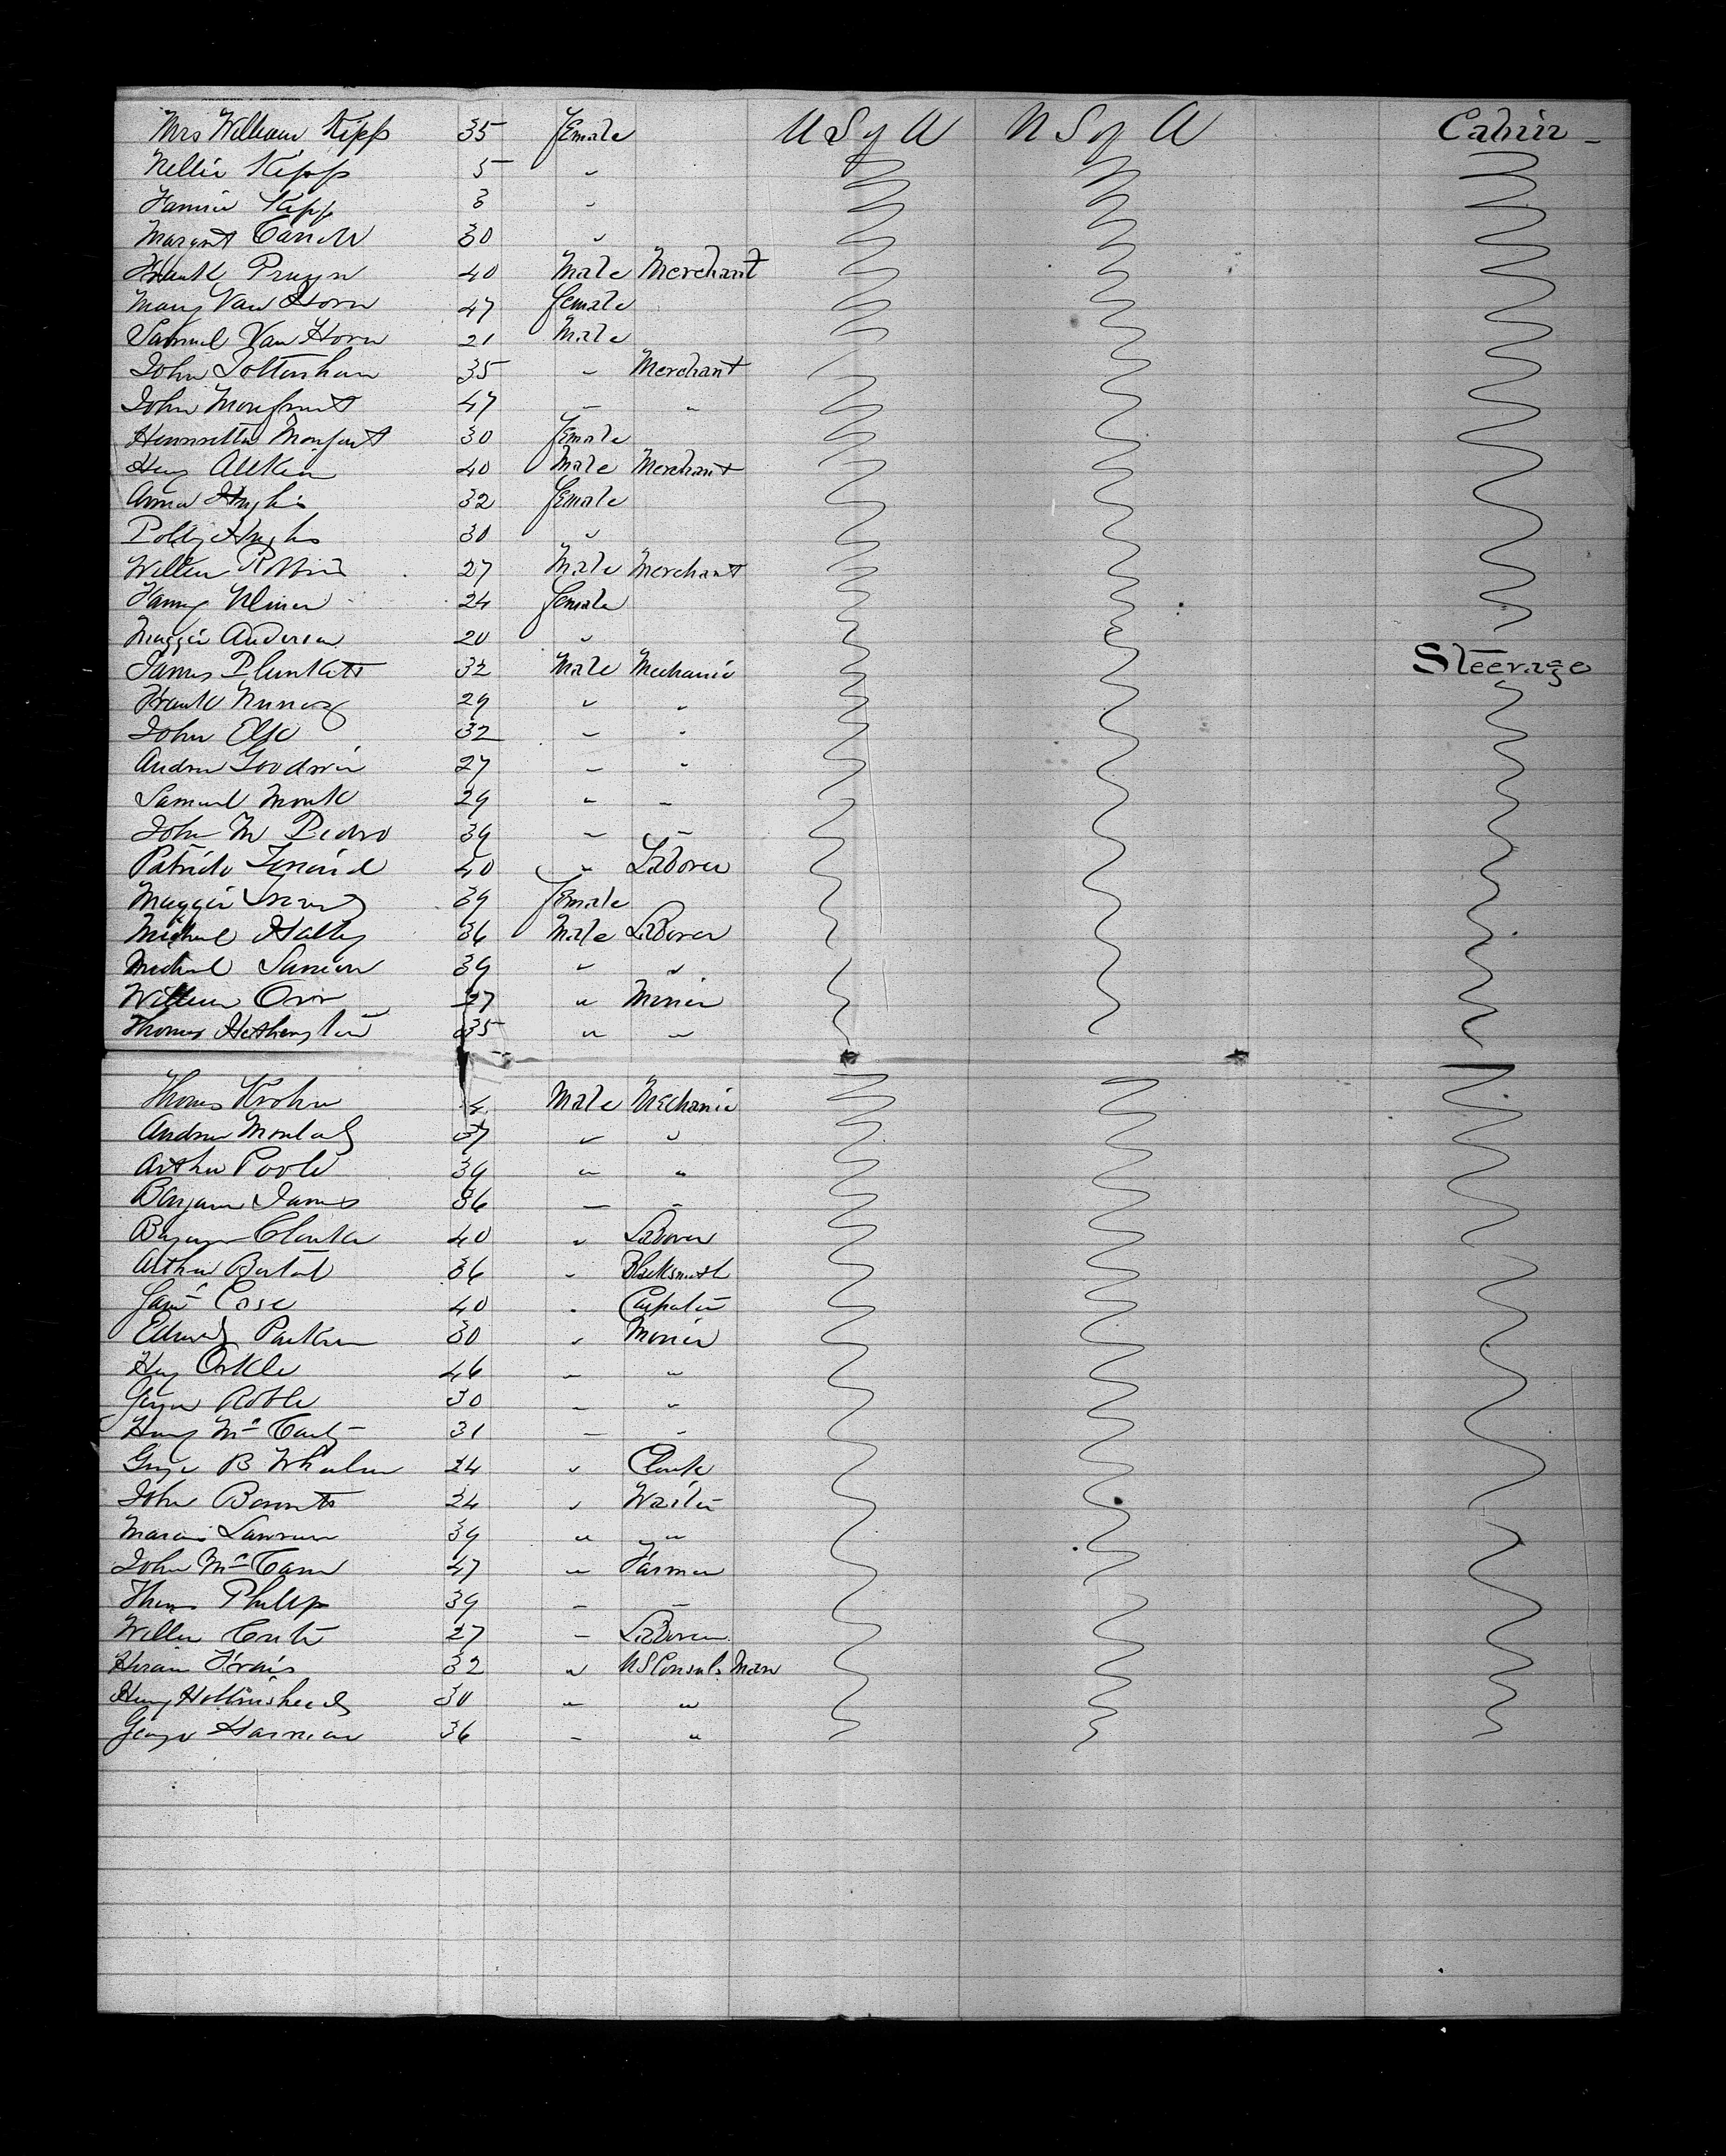 Mrs William Kipp 35 female U S of A U S of A Cabin
Nellie Kipp 5 "
Fannie Kipp 3 "
Margant Carroll 30 "
Frank Pruyn 40 Male Merchant
Mary Van Horn 47 female
Samuel Van Horn 21 Male
John Tottenham 35 " Merchant
John Monfrut 47 " "
Hennretta Monfort 30 female
Heny Aitkin 40 Male Merchant
Anna Hughes 32 female
Polly Hughs 30 "
Willm Robbins 27 Male Merchant
Fanny Ulmer 24 female
Maggie Anderson 20 "
James Plunkett 32 Male Mechanic Steerage
Frank 29 " "
John 32 " "
Andrew Goodwin 27 " "
Samuel Monk 29 " "
John M Pedro 39 " "
Patrick 40 " Laborer
Maggie 39 female
Michael Hally 36 Male Laborer
Michael 39 " "
William Orr 27 " Minier
Thomas Hethington 35 " "
Thomas Krohn Male Mechanic
Andrew 37 " "
Arthur Poole 39 " "
Benjamin James 36 " "
Clarke 40 " Laborer
Arthur 36 " Blacksmith
Case 40 " Carpater
Edward Parker 30 " Minier
Heny Orkle 46 " "
30 " "
Henry Mc Carty 31 " "
George B Wheeler 24 " Clerk
John 24 " Waiter
39 " "
John McCann 47 " Farmer
Thomas Philip 39 " "
27 " Laborer
Hiram 32 " US Consuls Man
Heny Hollinshead 30 " "
George Harman 36 " "